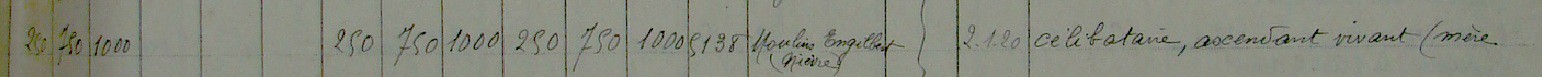 250 750 1000 250 750 1000 250 750 1000 5138 Moulins Engilbert } 2.1.20 célibataire, ascendant vivant (mère
(Nièvre)